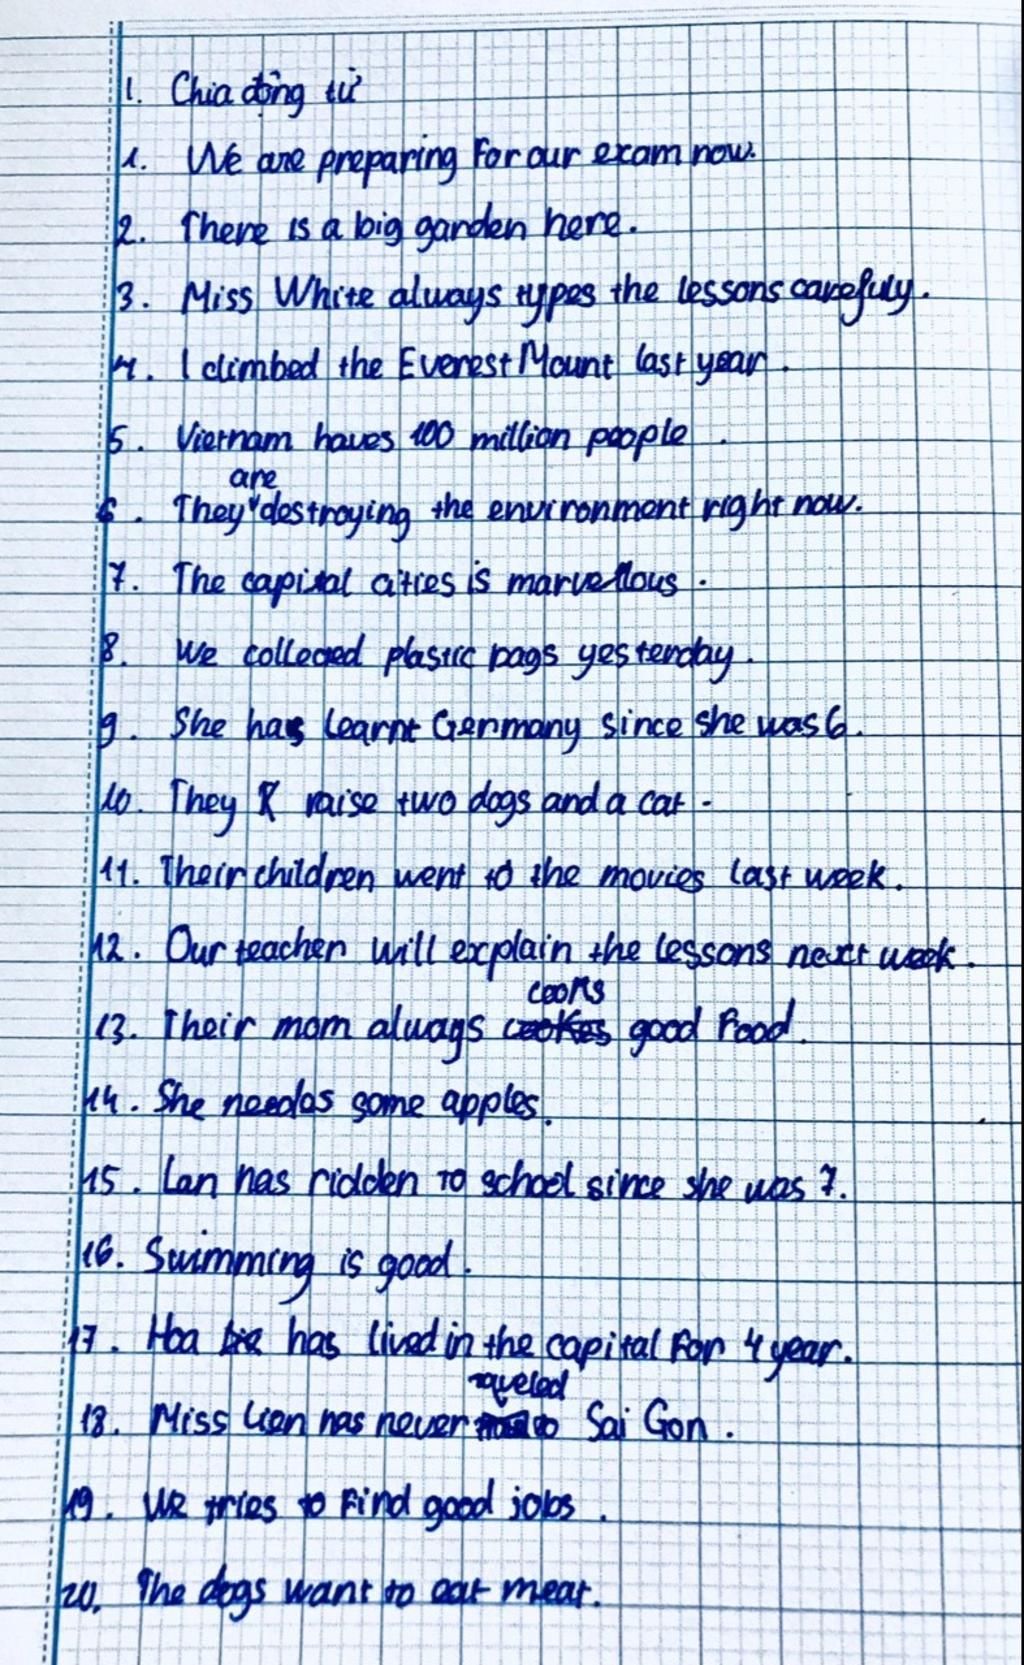 1. Chia động từ
1. We are preparing for our exam now.
2. There is a big garden here.
3. Miss White always types the lessons carefuly.
4. I climbed the Everest Mount last year.
5. Vietnam haves 100 million people.
are
6. They destroying the environment right now.
7. The capital cities is marvellous.
8. We colleced plastic bags yesterday.
9. She has learnt Germany since she was 6.
10. They raise two dogs and a cat.
11. Their children went to the movies last week.
12. Our teacher will explain the lessons next week.
cooks
13. Their mom always cookes good food.
14. She needs some apples.
15. Lan has ridden to school since she was 7.
16. Swimming is good.
17. Hoa has lived in the capital for 4 year.
traveled
18. Miss Lien has never to Sai Gon.
19. We tries to find good jobs.
20. The dogs want to eat meat.